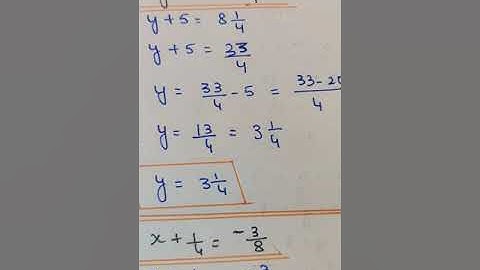 y + 5 = 8 1/4
y + 5 = 33/4
y = 33/4 - 5 = 33-20/4
y = 13/4 = 3 1/4
y = 3 1/4
x + 1/4 = -3/8